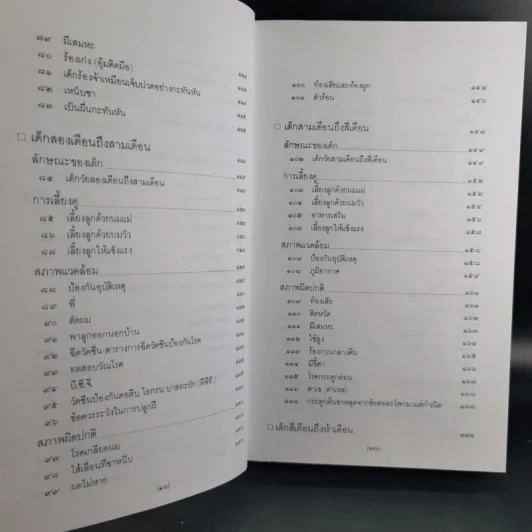 ๗๙ มีเสมหะ
๘๐ ร้องเก่ง (อุ้มติดมือ)
๘๑ เด็กร้องจ้าเหมือนเจ็บปวดอย่างกะทันหัน
๘๒ เหน็บชา
๘๓ เป็นผื่นกะทันหัน
□ เด็กสองเดือนถึงสามเดือน
ลักษณะของเด็ก
๘๔ เด็กวัยสองเดือนถึงสามเดือน
การเลี้ยงดู
๘๕ เลี้ยงลูกด้วยนมแม่
๘๖ เลี้ยงลูกด้วยนมวัว
๘๗ เลี้ยงลูกให้แข็งแรง
สภาพแวดล้อม
๘๘ ป้องกันอุบัติเหตุ
๘๙ พี่
๙๐ ตัดผม
๙๑ พาลูกออกนอกบ้าน
๙๒ ฉีดวัคซีน-ตารางการฉีดวัคซีนป้องกันโรค
๙๓ ทดสอบวัณโรค
๙๔ บี.ซี.จี.
๙๕ วัคซีนป้องกันคอตีบ ไอกรน บาดทะยัก (ดีพีที)
๙๖ ข้อควรระวังในการปลูกฝี
สภาพผิดปกติ
๙๗ โรคเกลียดนม
๙๘ ไส้เลื่อนที่ขาหนีบ
๙๙ ผดไม่หาย
(๑๖)
๑๐๐ ท้องเสียและท้องผูก ๑๔๕
๑๐๑ ตัวร้อน ๑๔๖
□ เด็กสามเดือนถึงสี่เดือน ๑๔๗
ลักษณะของเด็ก ๑๔๙
๑๐๒ เด็กวัยสามเดือนถึงสี่เดือน ๑๔๙
การเลี้ยงดู ๑๕๒
๑๐๓ เลี้ยงลูกด้วยนมแม่ ๑๕๒
๑๐๔ เลี้ยงลูกด้วยนมวัว ๑๕๔
๑๐๕ อาหารเสริม ๑๕๖
๑๐๖ เลี้ยงลูกให้แข็งแรง
สภาพแวดล้อม ๑๕๘
๑๐๗ ป้องกันอุบัติเหตุ ๑๕๘
๑๐๘ ภูมิอากาศ ๑๕๙
สภาพผิดปกติ ๑๖๑
๑๐๙ ท้องเสีย ๑๖๑
๑๑๐ ติดหวัด ๑๖๒
๑๑๑ มีเสมหะ
๑๑๒ ไข้สูง
๑๑๓ ร้องกวนกลางคืน
๑๑๔ มีขี้ตา
๑๑๕ โรคกระดูกอ่อน
๑๑๖ ตาเข (ตาเหล่)
๑๑๗ กระดูกต้นขาหลุดจากข้อต่อตะโพกมาแต่กำเนิด
□ เด็กสี่เดือนถึงห้าเดือน ๑๗๑
(๑๗)